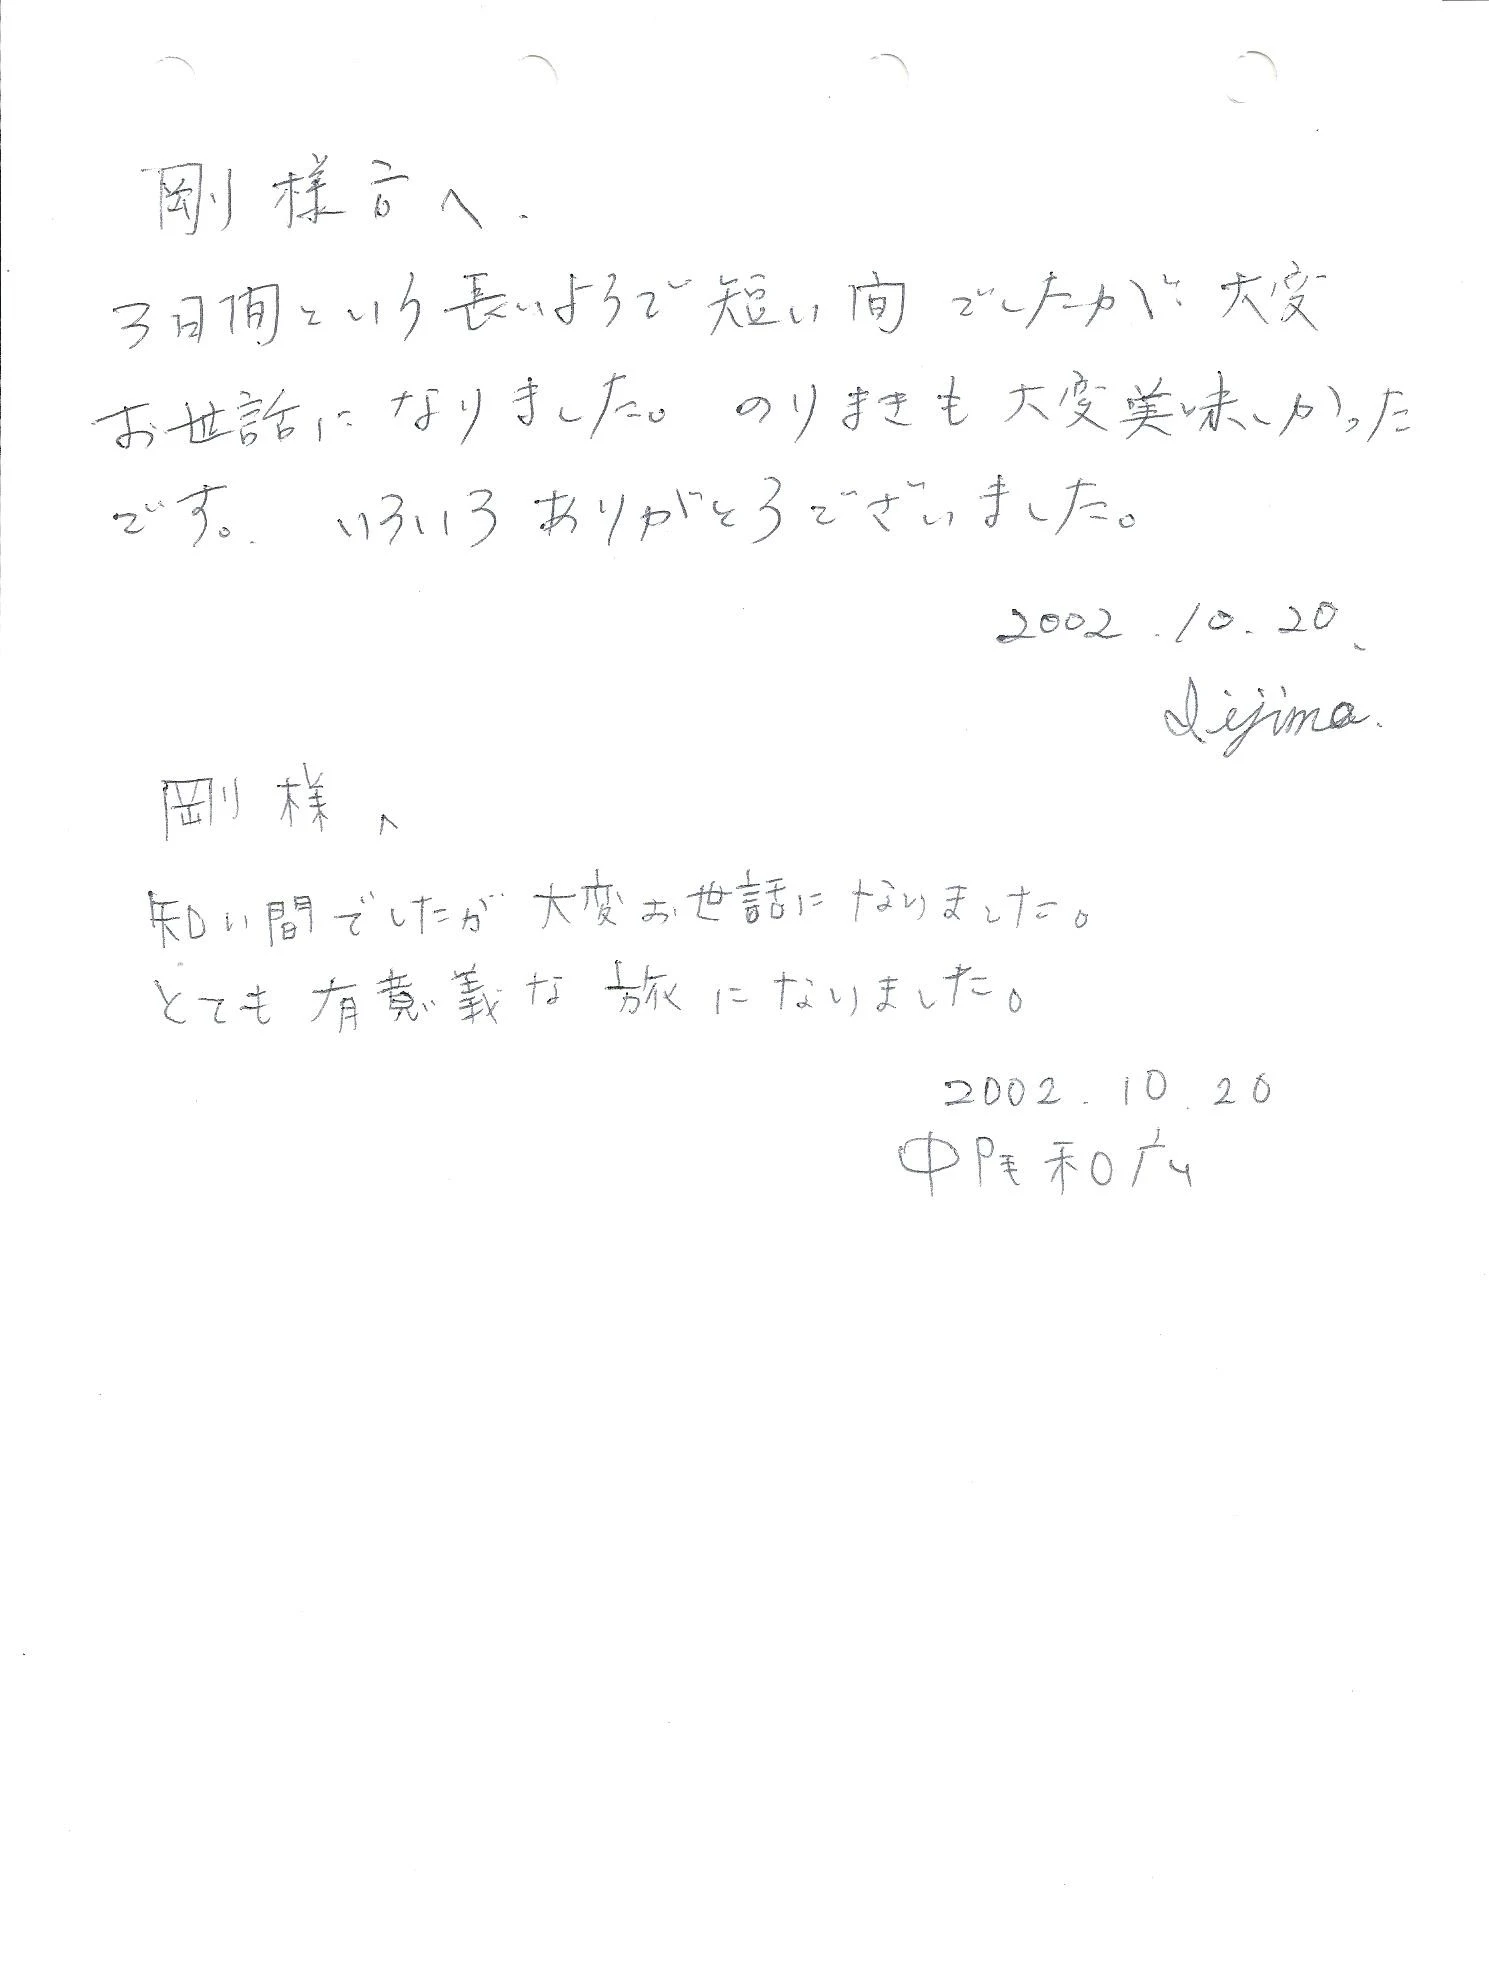 剛様方へ.
3日間という長いようで短い間でしたが、大変
お世話になりました。のりまきも大変美味しかった
です。いろいろありがとうございました。
2002.10.20.
Iijima.
剛様へ
知い間でしたが大変お世話になりました。
とても有意義な旅になりました。
2002.10.20
和広